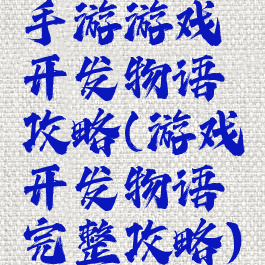 手游游戏
开发物语
攻略(游戏
开发物语
完整攻略)